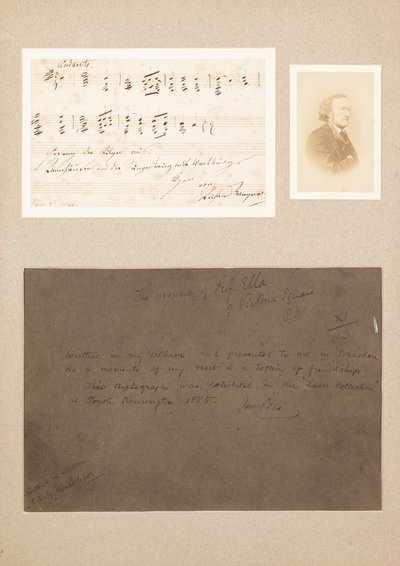 Andante
Gesang der Pilger aus
Tannhäuser und der Sängerkrieg auf Wartburg.
von
Richard Wagner
The property of Prof. Ella
9 Victoria Square
S.W.
XI
113
Written in my Album and presented to me in Dresden
as a memento of my visit & a token of friendship.
This Autograph was exhibited in the Loan Collection
at South Kensington 1885.
Jno. Ella